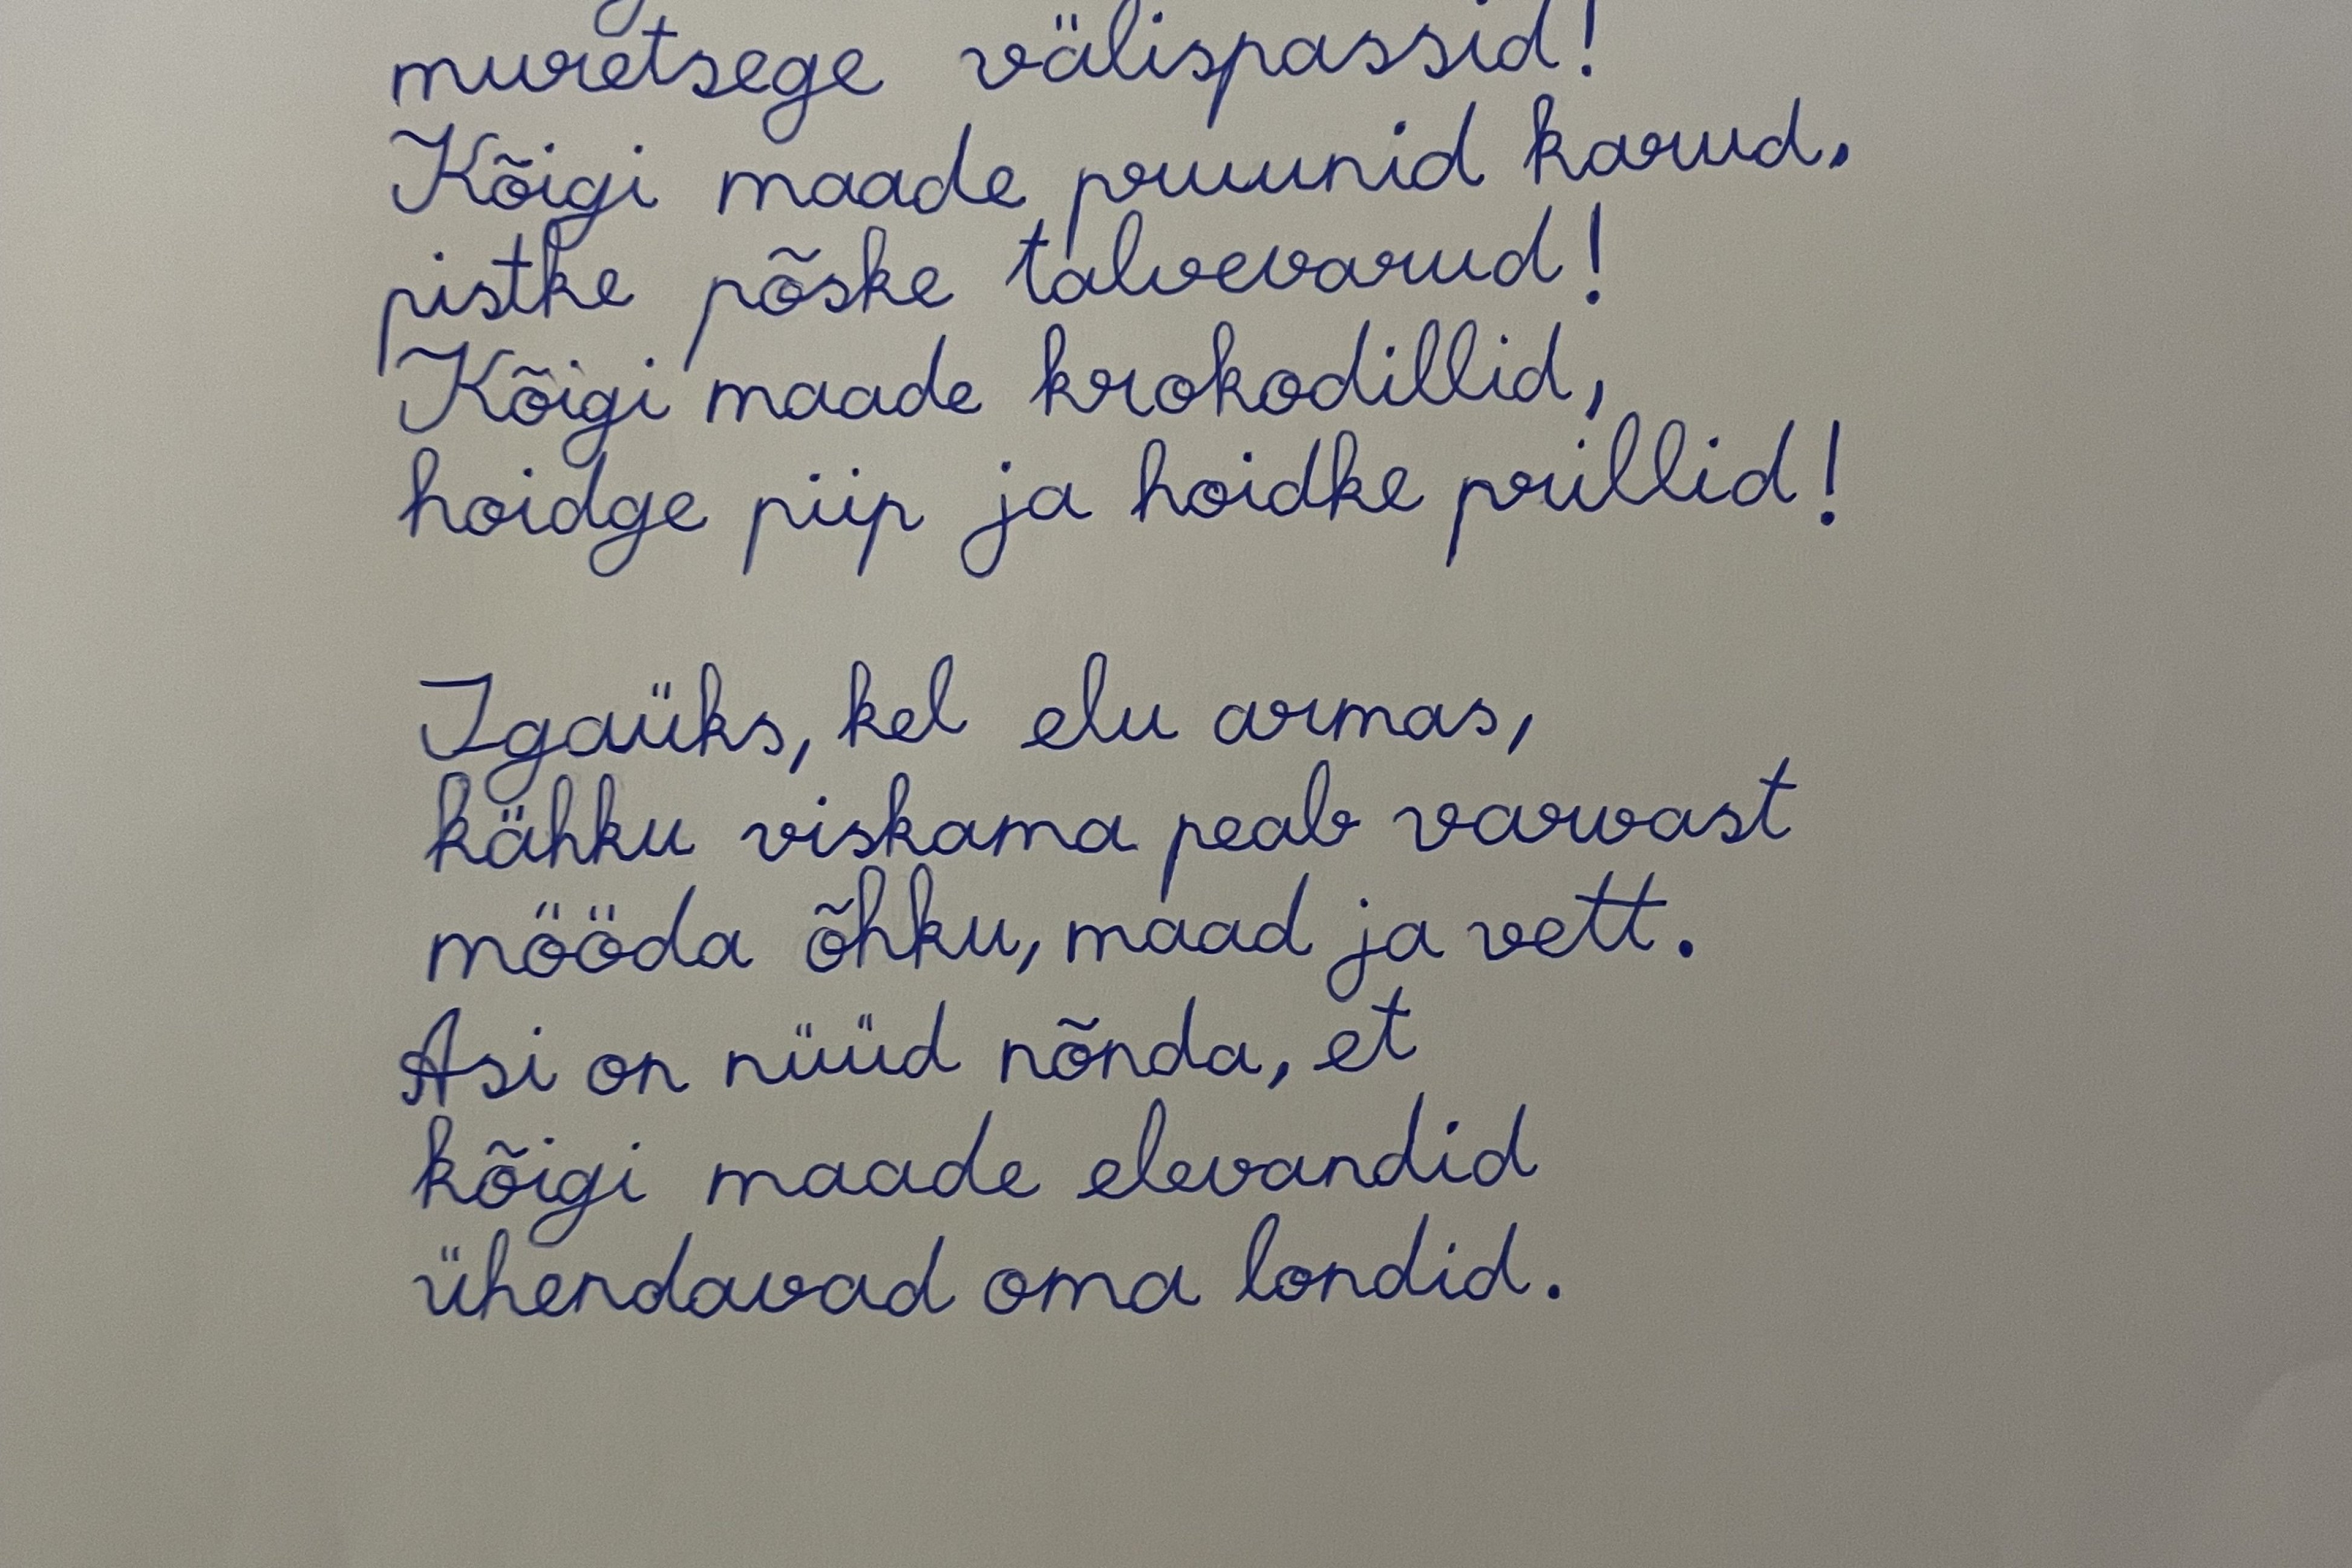 muretsege välispassid!
Kõigi maade pruunid karud,
pistke põske talvevarud!
Kõigi maade krokodillid,
hoidge piip ja hoidke prillid!
Igaüks, kel elu armas,
kähku viskama peab varvast
mööda õhku, maad ja vett.
Asi on nüüd nõnda, et
kõigi maade elevandid
ühendavad oma londid.